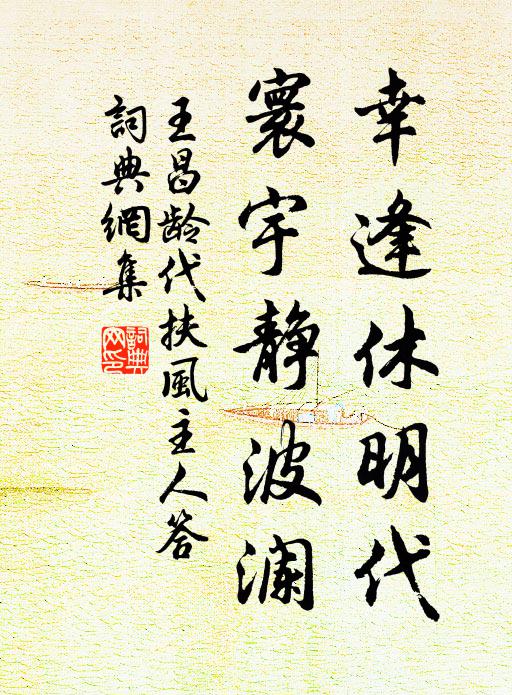 幸逢休明代
寰宇静波澜
王昌龄代扶風主人答
詞典網集
詞典網印